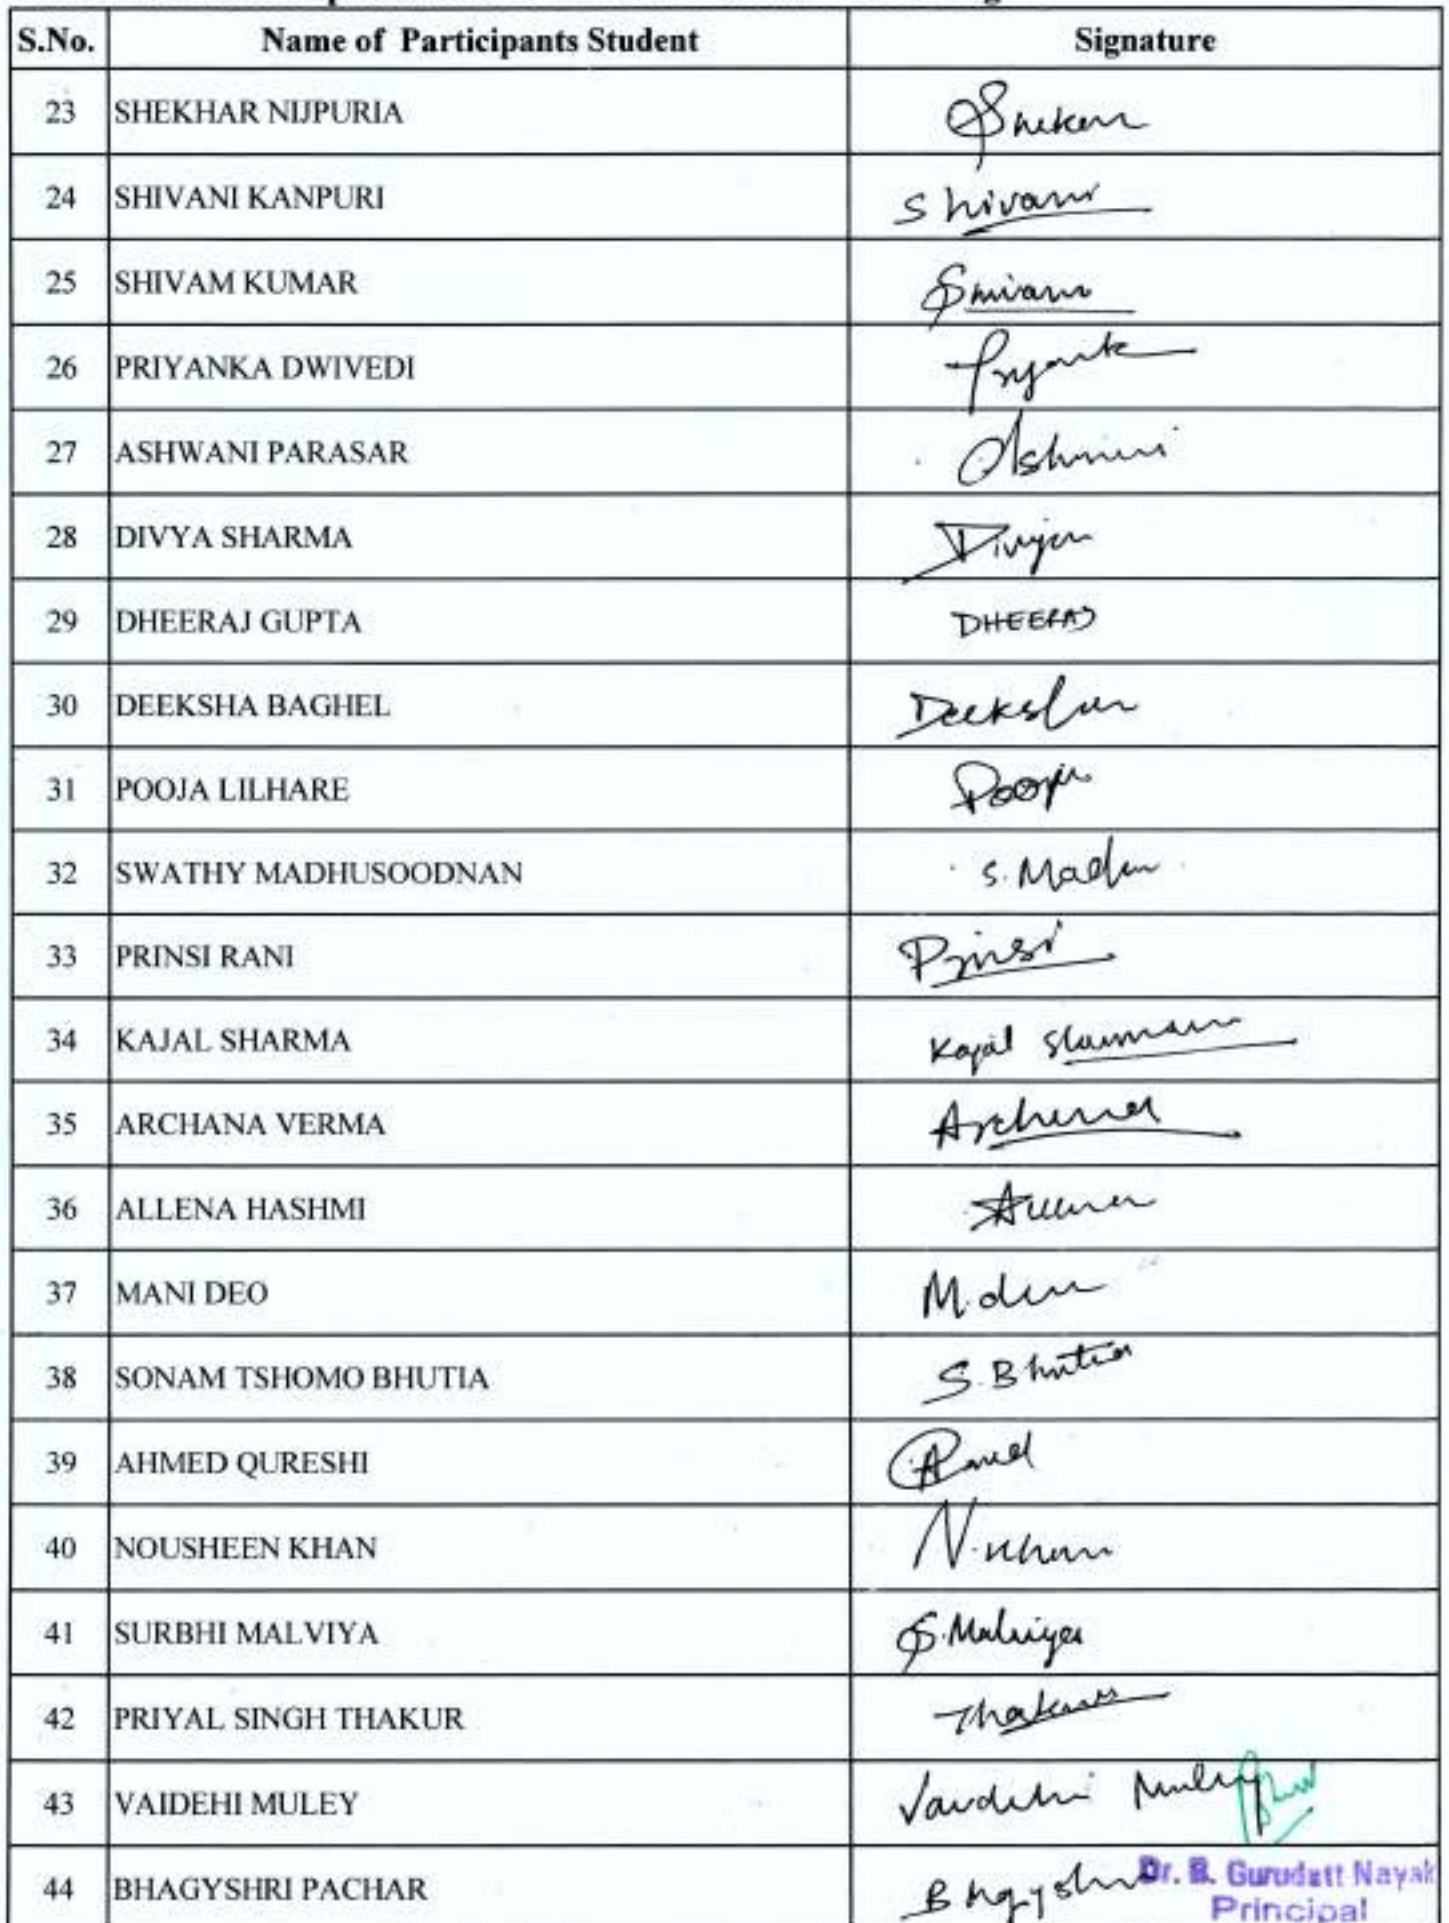 S.No. Name of Participants Student Signature
23 SHEKHAR NIJPURIA Shekar
24 SHIVANI KANPURI Shivani
25 SHIVAM KUMAR Shivam
26 PRIYANKA DWIVEDI Priyanka
27 ASHWANI PARASAR Ashwini
28 DIVYA SHARMA Divya
29 DHEERAJ GUPTA DHEERAJ
30 DEEKSHA BAGHEL Deeksha
31 POOJA LILHARE Pooja
32 SWATHY MADHUSOODNAN S. Madhu
33 PRINSI RANI Prinsi
34 KAJAL SHARMA Kajal Sharma
35 ARCHANA VERMA Archana
36 ALLENA HASHMI
37 MANI DEO
38 SONAM TSHOMO BHUTIA S. Bhutia
39 AHMED QURESHI
40 NOUSHEEN KHAN N. Khan
41 SURBHI MALVIYA S. Malviya
42 PRIYAL SINGH THAKUR Thakur
43 VAIDEHI MULEY Vaidehi Muley
44 BHAGYSHRI PACHAR
Dr. B. Gurudatt Nayak
Principal